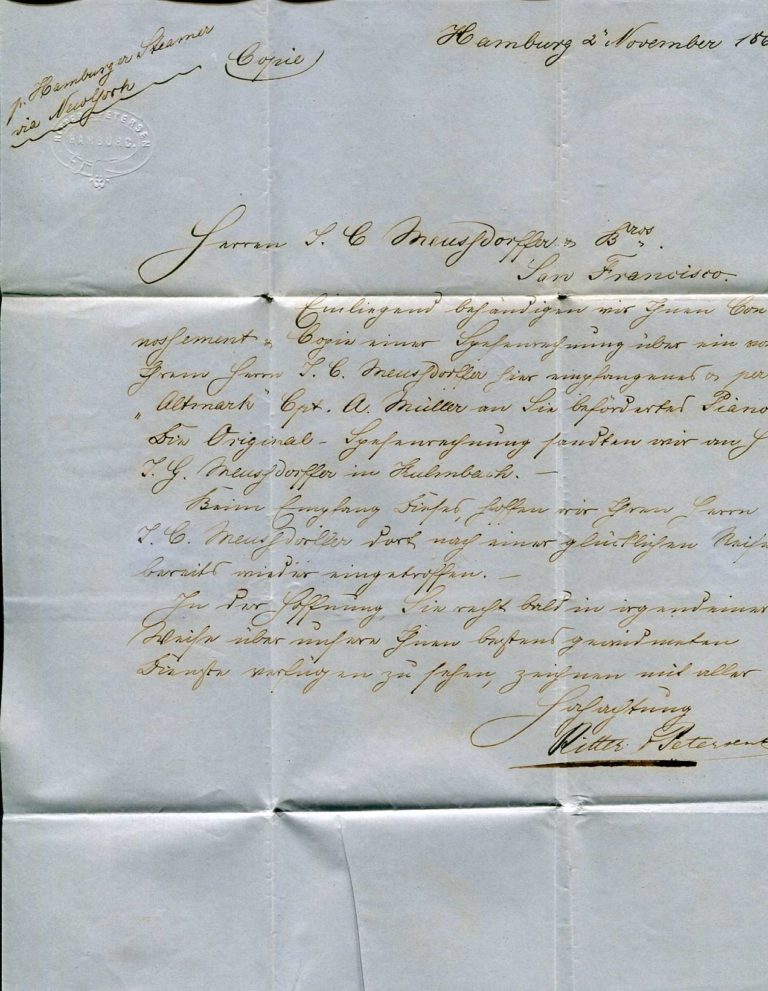 p. Hamburger Steamer
via NewYork
Copie
Hamburg 2' November 186
PETERSEN
HAMBURG.
Herren J. C. Meussdorffer & Bros.
San Francisco.
Einliegend behändigen wir Ihnen Con
nossement & Copie einer Spesenrechnung über ein vo
Ihrem Herrn J. C. Meussdorffer hier empfangenes & per
"Altmark" Cpt. A. Müller an Sie befördertes Piano
Die Original-Spesenrechnung sandten wir an H
J. G. Meussdorffer in Kulmbach. —
Beim Empfang dieses, hoffen wir Ihren Herrn
J. C. Meussdorffer dort nach einer glücklichen Reise
bereits wieder eingetroffen. —
In der Hoffnung, Sie recht bald in irgend einer
Weise über unsere Ihnen bestens gewidmeten
Dienste verfügen zu sehen, zeichnen mit aller
Hochachtung
Ritter & Petersen